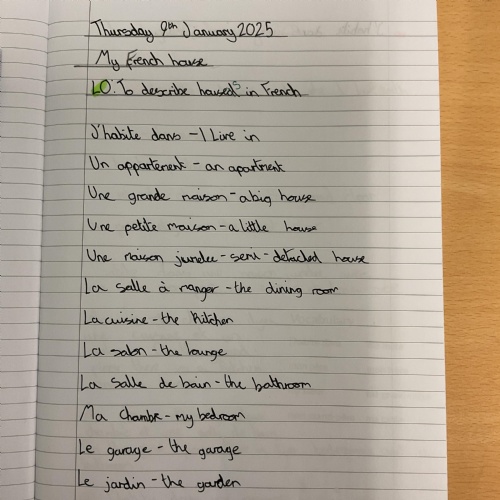 Thursday 9th January 2025
My French house
LO: To describe houses in French
J'habite dans - I Live in
Un appartement - an apartment
Une grande maison - a big house
Une petite maison - a little house
Une maison jumelee - semi-detached house
La salle à manger - the dining room
La cuisine - the Kitchen
La salon - the lounge
La Salle de bain - the bathroom
Ma Chambr - my bedroom
Le garage - the garage
Le jardin - the garden